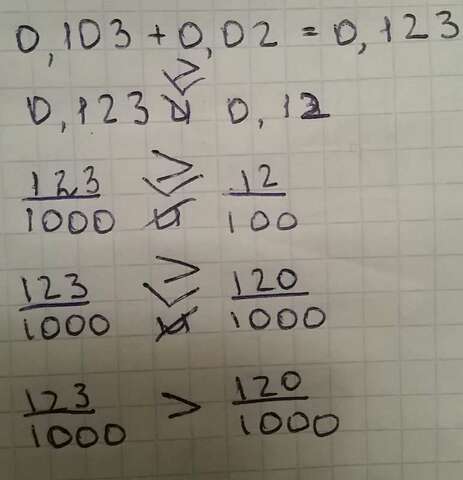 0,103 + 0,02 = 0,123
0,123 ⋛ 0,12
123/1000 ⋛ 12/100
123/1000 ⋛ 120/1000
123/1000 > 120/1000